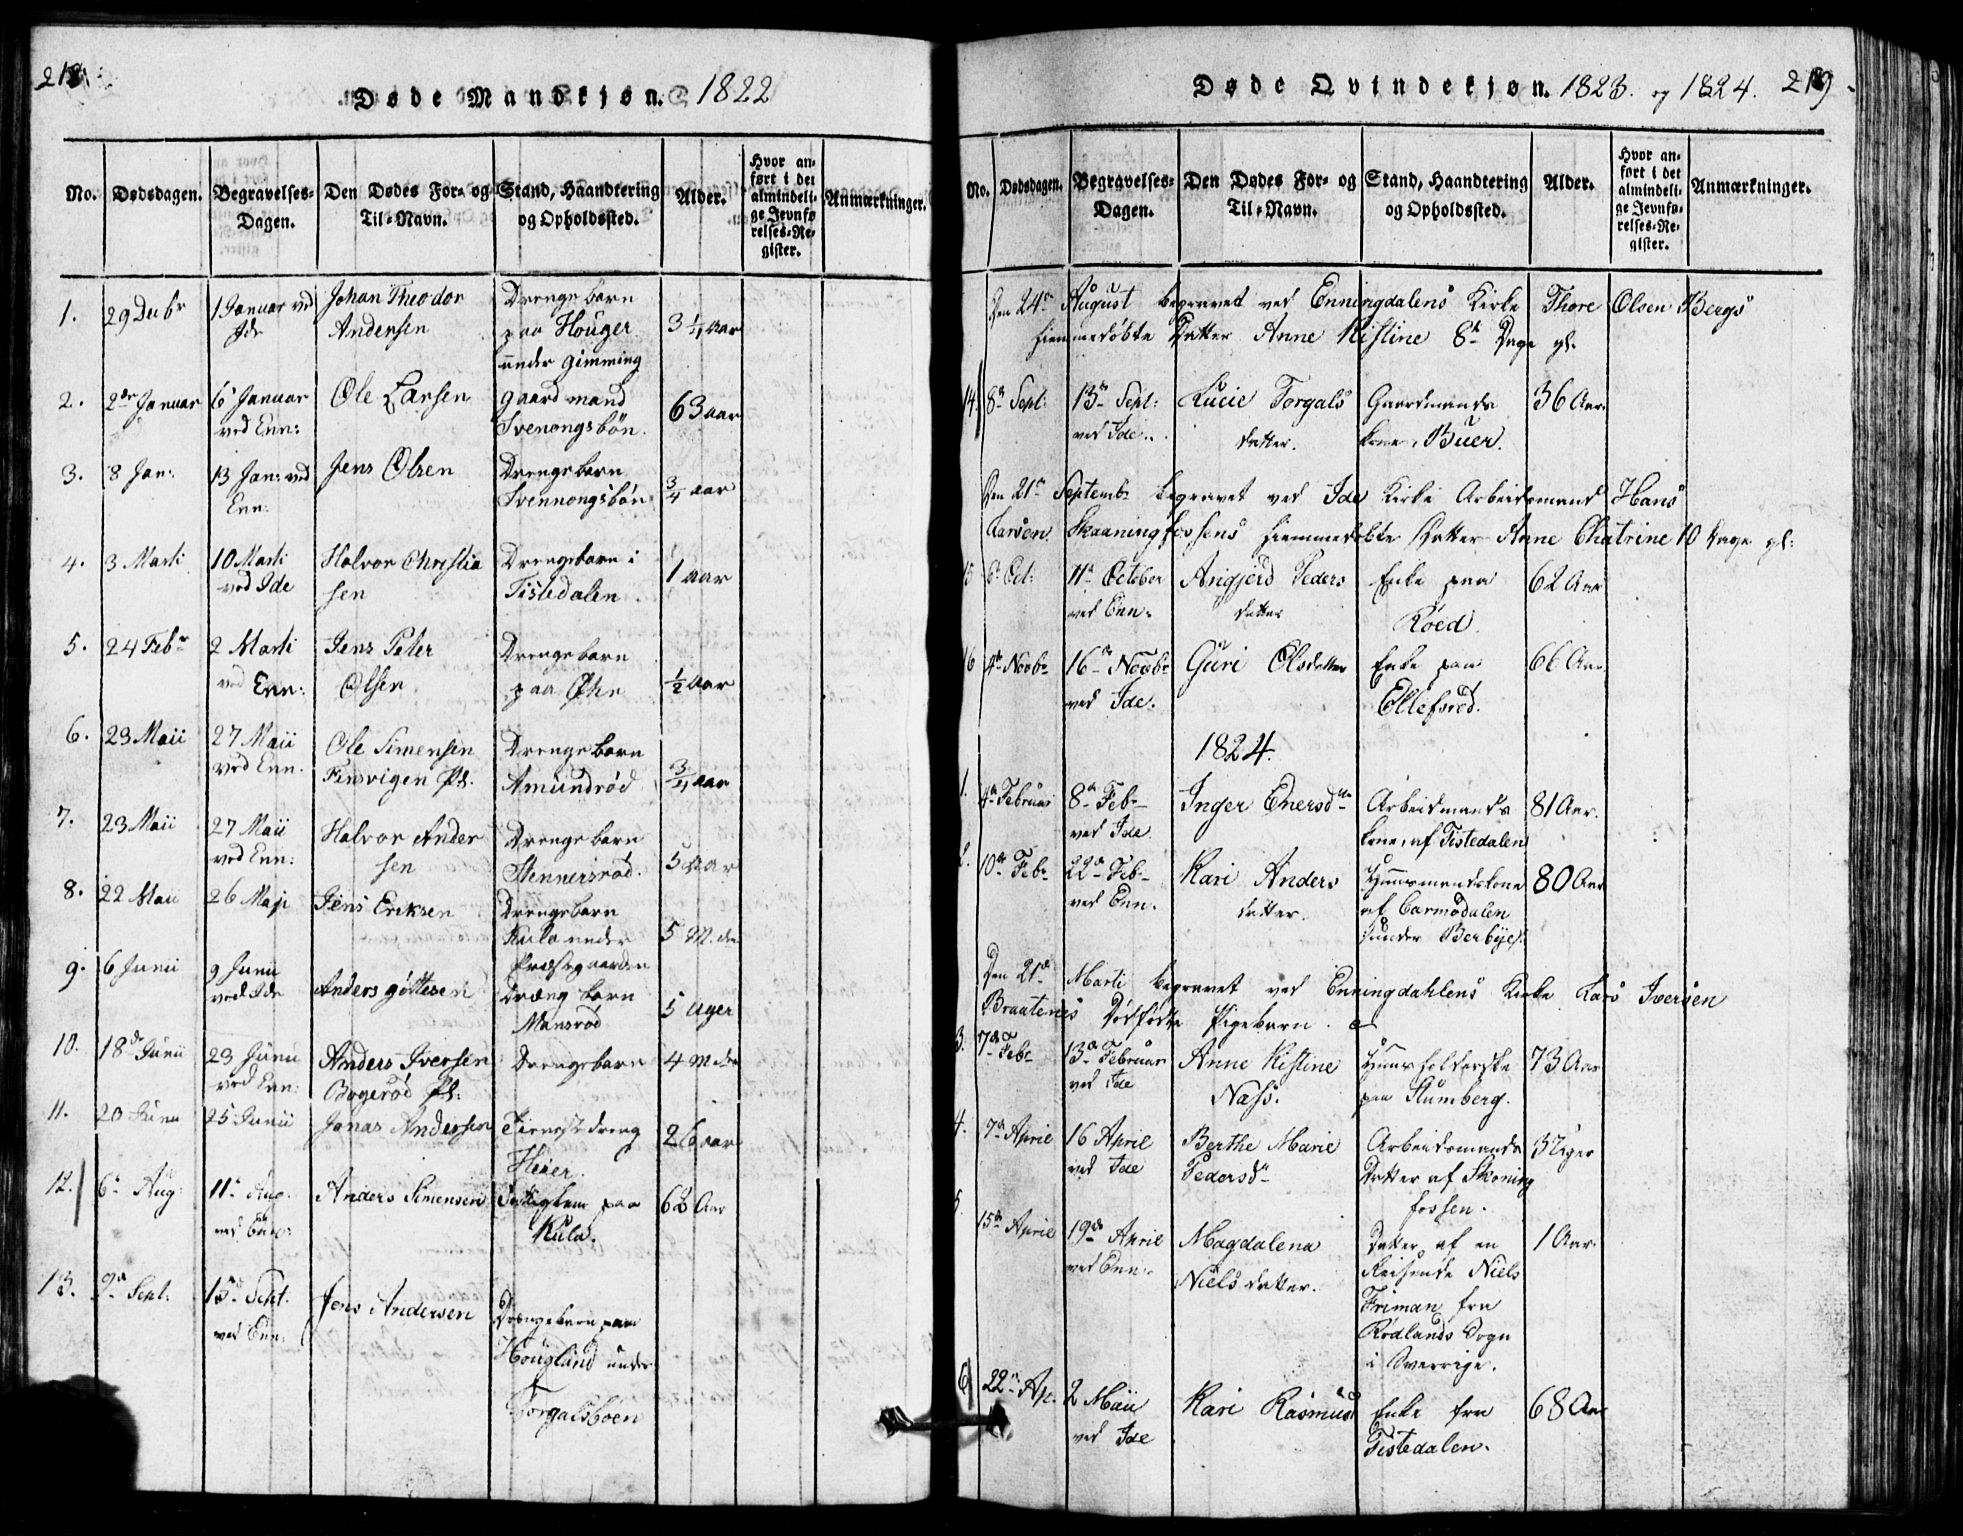 218.
Døde Mandkjøn. 1822
No. Dødsdagen. Begravelses-Dagen. Den Dødes For- og Til-Navn. Stand, Haandtering og Opholdssted. Alder. Hvor anført i det almindelige Jevnførelses-Register. Anmærkninger.
1. 29 Decbr 1 Januar ved Ide Johan Theodor Andersen Drengebarn paa Houger under Gimming 3 1/4 aar
2. 2de Januar 6 Januar ved Enn: Ole Larsen Gaardmand Svenongsbøn. 63 aar
3. 8 Jan: 13 Jan: ved Enn: Jens Olsen Drengebarn Svennongsbøn 3/4 aar
4. 3 Marti 10 Marti ved Ide Halvor Christiasen Drengebarn i Tistedalen 1 aar
5. 24 Febr 2 Marti ved Enn: Jens Peter Olsen Drengebarn paa Øhn 1/2 aar
6. 23 Maii 27 Maii ved Enn. Ole Simensen Finsvigen Pl. Drengebarn Amundrød 3/4 aar
7. 23 Maii 27 Maii ved Enn: Halvor Andersen Drengebarn Stennersrød. 5 aar
8. 22 Maii 26 Maji Jens Eriksen Drengebarn Kula under Præstegaarden 5 M.der
9. 6 Junii 9 Junii ved Ide Anders Gøttesen Dreng barn Mansrød 5 Uger
10. 18de Junii 23 Junii ved Enn: Anders Iversen Bogerød Pl: Drengebarn 4 M.der
11. 20 Junii 25 Junii Jonas Andersen Tienestdreng Heier. 26 aar
12. 6te Aug: 11te Aug. ved Enn: Anders Simensen Fattiglem paa Kula. 62 Aar
13. 9de Sept: 15de Sept. ved Enn: Jens Andersen Drengebarn paa Hougland under Torgalsbøen
Døde Qvindekjøn. 1823. og 1824. 219
No. Dødsdagen. Begravelses-Dagen. Den Dødes For- og Til-Navn. Stand, Haandtering og Opholdssted. Alder. Hvor anført i det almindelige Jevnførelses-Register. Anmærkninger.
Den 24de August begravet ved Enningdalens Kirke Thore Olsen Bergs
hiemmedøbte Datter Anne Kistine 8te Dage gl.
14. 8de Sept: 13de Sept: ved Ide. Lucie Torgals datter. Gaardmands kone, Buer. 36 Aar.
Den 21de Septembr begravet ved Ide Kirke Arbeidsmand Hans
Larsen Skaaningfossens hiemmedøbte Datter Anne Chatrine 10 Dage gl:
15 6te Oct: 11te October ved Enn. Angjerd Peders datter Enke paa Röed. 62 Aar
16 4de Novbr 16de Novbr ved Ide. Guri Olsdatter Enke paa Ellefsrød. 66 Aar
1824.
1. 4de Februar 8de Febr ved Ide Inger Enersdtr Arbeidmands kone, af Tistedalen 81 Aar.
2. 10de Febr 22de Febr ved Enn. Kari Anders datter. Huusmandskone af Carmødalen under Berbye. 80 Aar
Den 21de Marti begravet ved Enningdahlens Kirke Lars Iversen
Braatenes Dødfødte Pigebarn.
3. 7de Febr 13de Februar ved Ide Anne Kistine Nass. Huusholderske paa Stumberg. 73 Aar
4. 7de April 16 April ved Ide Berthe Marie Pedersdr Arbeidsmands Datter af Skoningfossen. 3 Uger
5 15de April 19de April ved Enn. Magdalena Niels datter. Datter af en Reisende Niels Friman fra Rødlands Sogn i Sverrige. 1 Aar.
6 22de Ap. 2 Maii ved Ide Kari Rasmusd Enke fra Tistedalen. 68 Aar